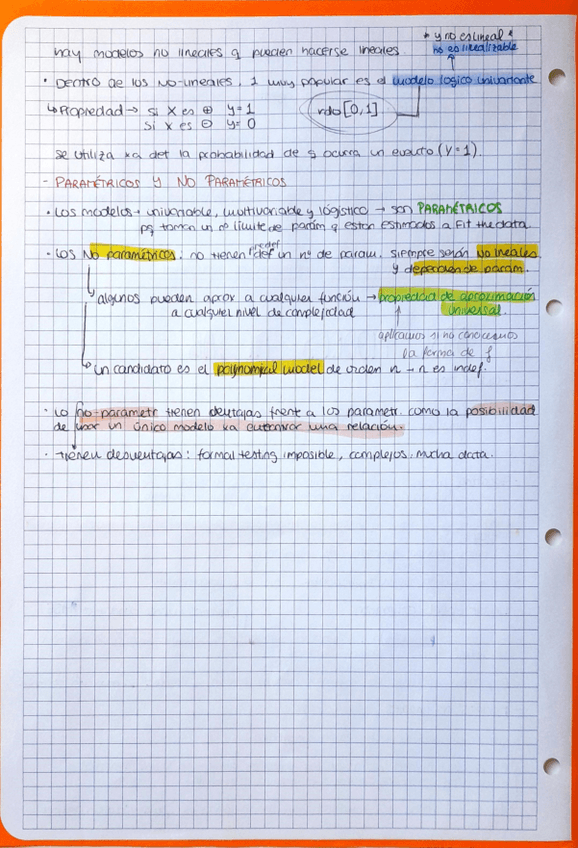 * y no es lineal *
hay modelos no lineales q pueden hacerse lineales no es linealizable
· Dentro de los No-lineales, 1 muy popular es el modelo logico univariante
↳ Propiedad → si X es ⊕ y=1 rdo [0,1]
si x es ⊖ y=0
se utiliza xa det la probabilidad de q ocurra un evento (Y=1).
- PARAMÉTRICOS Y NO PARAMÉTRICOS
· Los modelos → univariable, multivariable y logístico → son PARAMÉTRICOS
pq toman un nº límite de param q estan estimados a Fit the data.
· Los No paramétricos: no tienen predef un nº de param. siempre serán No lineales
y dependen de param.
algunos pueden aprox a cualquier función → propiedad de aproximación
a cualquier nivel de complejidad universal.
aplicamos si no conocemos
la forma de f
↳ un candidato es el polynomial model de orden n → n es indef.
· Lo no-parametr tienen ventajas frente a los parametr. como la posibilidad
de usar un único modelo xa encontrar una relación.
· Tienen desventajas: formal testing imposible, complejos. mucha data.